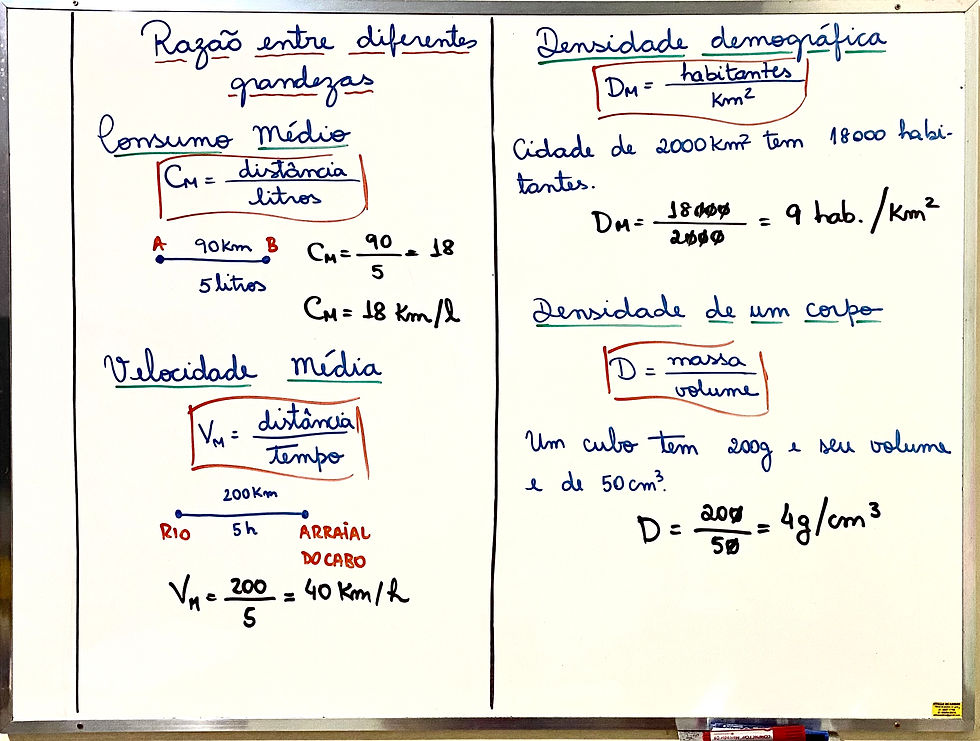 Razão entre diferentes
grandezas
Consumo Médio
CM = distância / litros
A 90Km B
5 litros
CM = 90/5 = 18
CM = 18 Km/l
Velocidade média
VM = distância / tempo
200Km
RIO 5h ARRAIAL
DO CABO
VM = 200/5 = 40 Km/h
Densidade demográfica
DM = habitantes / Km²
Cidade de 2000 km² tem 18000 habi-
tantes.
DM = 18000/2000 = 9 hab./Km²
Densidade de um corpo
D = massa / volume
Um cubo tem 200g e seu volume
e de 50 cm³.
D = 200/50 = 4g/cm³